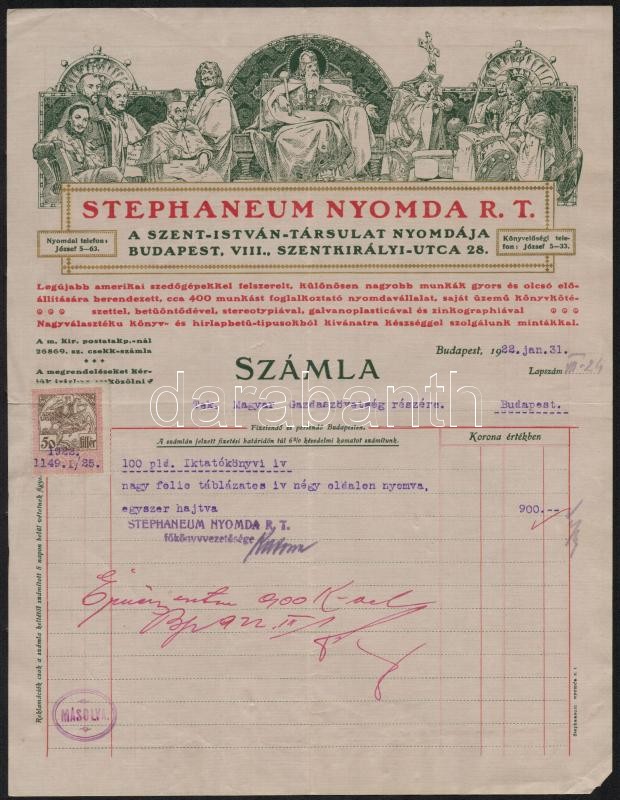 STEPHANEUM NYOMDA R. T.
A SZENT-ISTVÁN-TÁRSULAT NYOMDÁJA
BUDAPEST, VIII., SZENTKIRÁLYI-UTCA 28.
Nyomdai telefon:
József 5—63.
Könyvelőségi tele-
fon: József 5—33.
Legújabb amerikai szedőgépekkel felszerelt, különösen nagyobb munkák gyors és olcsó elő-
állítására berendezett, cca 400 munkást foglalkoztató nyomdavállalat, saját üzemű könyvköté-
szettel, betűöntődével, stereotypiával, galvanoplasticával és zinkographiával
Nagyválasztéku könyv- és hirlapbetű-tipusokból kívánatra készséggel szolgálunk mintákkal.
A m. kir. postatakp.-nál
26869. sz. csekk-számla
A megrendeléseket kér-
jük írásban eszközölni
SZÁMLA
Budapest, 1922. jan. 31.
Lapszám VII-24
darabanth
Tek. Magyar Gazdaszövetség részére. Budapest.
Fizetendő s perlendő Budapesten.
A számlán jelzett fizetési határidőn túl 6% késedelmi kamatot számítunk.
Korona értékben
50 fillér
1922.
1149.I/25.
100 pld. Iktatókönyvi iv
nagy folio táblázatos iv négy oldalon nyomva,
egyszer hajtva 900.--
STEPHANEUM NYOMDA R. T.
főkönyvvezetősége
900 K-
Bp 922
MÁSOLVA.
Reklamációk csak a számla keltétől számított 8 napon belül vétetnek
Stephaneum nyomda r. t.